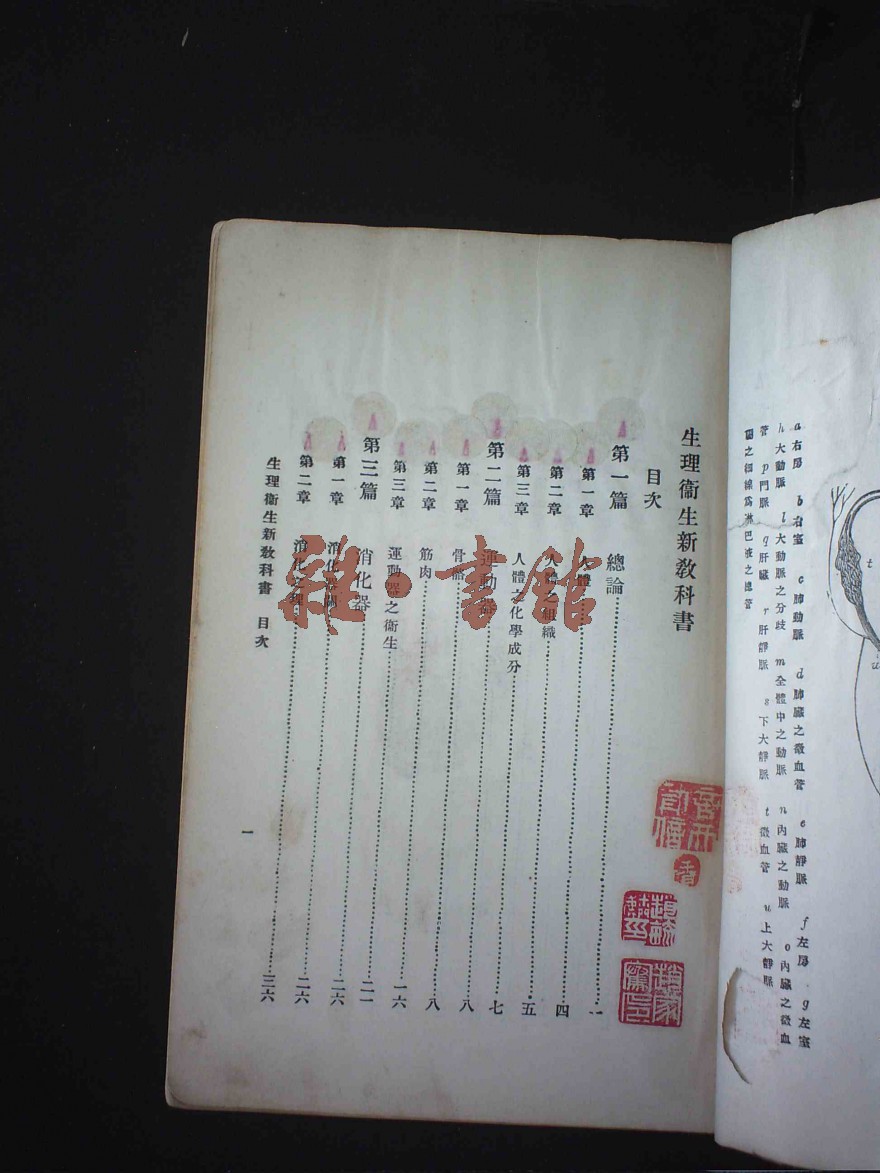 a右房 b右室 c肺動脈 d肺臟之微血管 e肺靜脈 f左房 g左室
h大動脈 l大動脈之分歧 m全體中之動脈 n內臟之動脈 o內臟之微血
管 p門脈 q肝臟 r肝靜脈 s下大靜脈 t微血管 u上大靜脈
圖之細線爲淋巴液之總管
t
u
生理衞生新教科書
目次
第一篇 總論 一
第一章 人體 四
第二章 人體之組織 五
第三章 人體之化學成分 七
第二篇 運動器 八
第一章 骨骼 八
第二章 筋肉 一六
第三章 運動器之衞生 二一
第三篇 消化器 二六
第一章 消化機關 二六
第二章 消化生理 三六
生理衞生新教科書 目次
一
雜·書館